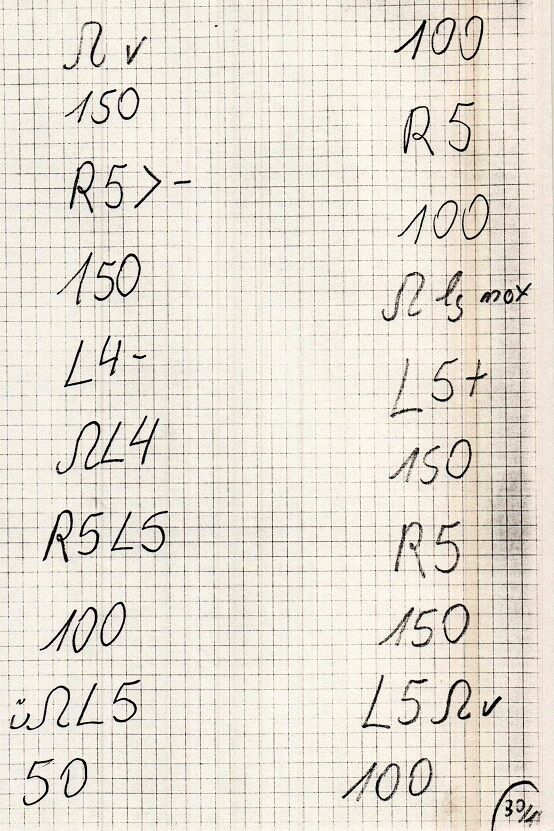 Ω v
150
R5>-
150
L4-
ΩL4
R5L5
100
üΩL5
50
100
R5
100
Ω lg max
L5+
150
R5
150
L5Ωv
100